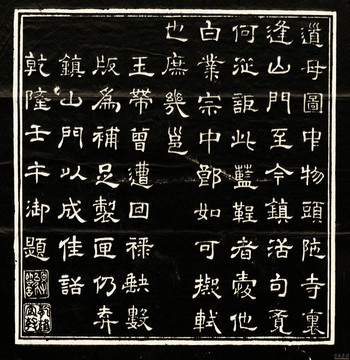 遺母圖中物頭陁寺裏
逢山門至今鎮活句竟
何從詎此藍鞓者愛他
白業宗中鄭如可擬軾
也庶幾邕
玉帶曾遭回祿缺數
版為補足製匣仍弆
鎮山門以成佳話
乾隆壬午御題